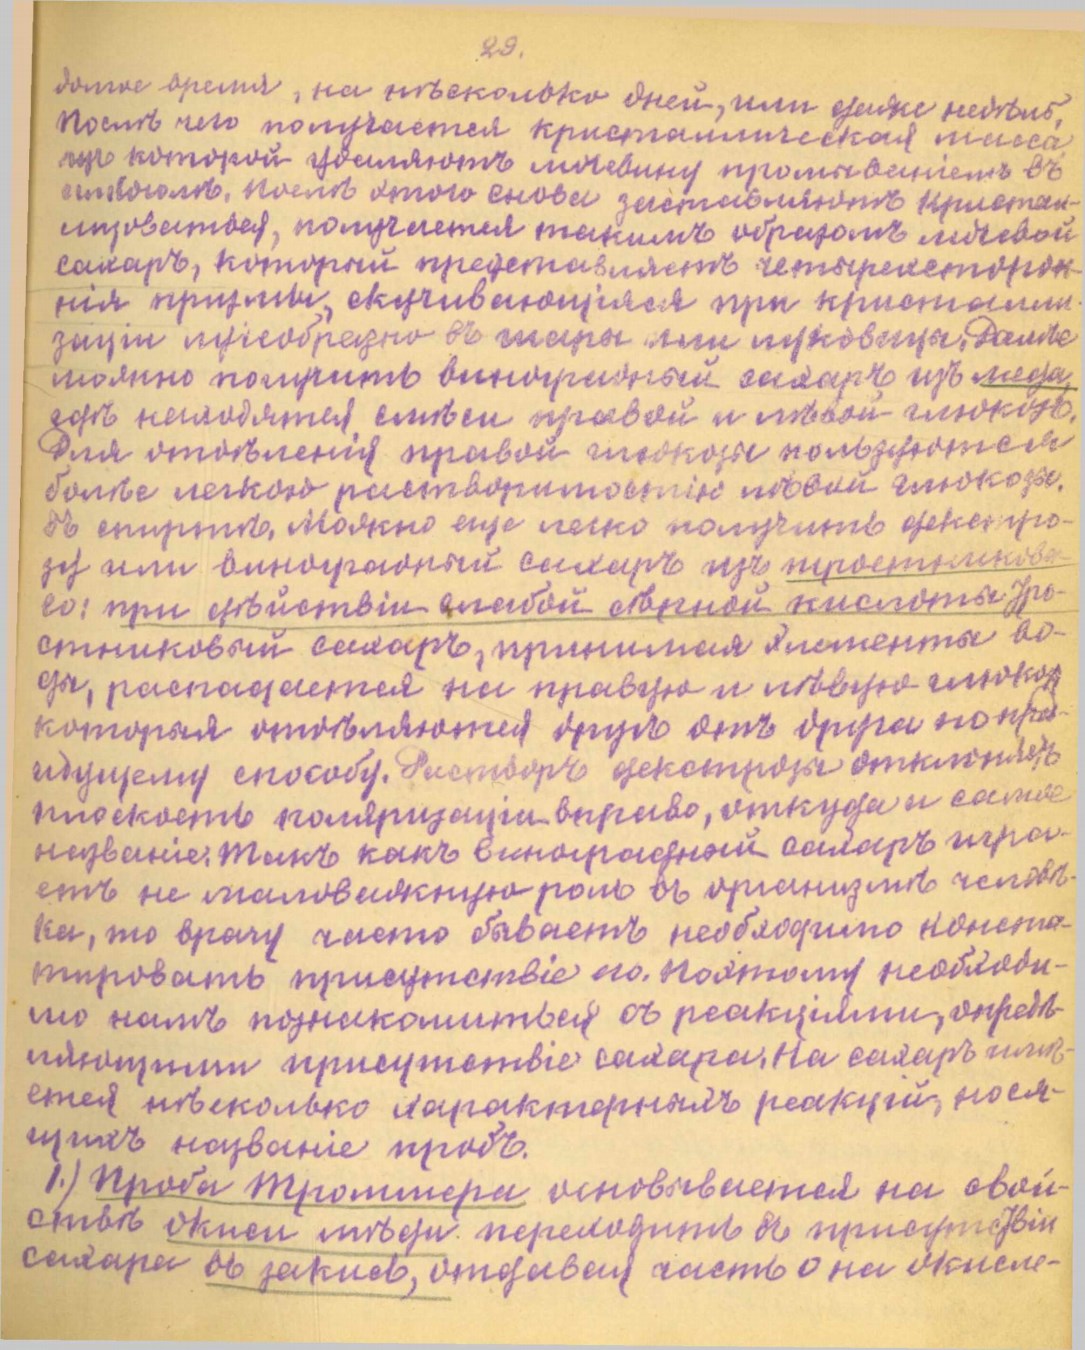 29.
долгое время, на нѣсколько дней, или даже недѣль,
послѣ чего получается кристаллическая масса
изъ которой удаляютъ мочевину промываніемъ въ
алкоголѣ. Послѣ этого снова заставляютъ кристал-
лизоваться, получается такимъ образомъ мочевой
сахаръ, который представляетъ четырехсторон-
нія призмы, скучивающіяся при кристалли-
заціи лучеобразно въ шары или луковицы. Далѣе
можно получить виноградный сахаръ изъ меда,
гдѣ находятся смѣси правой и лѣвой глюкозъ.
Для отдѣленія правой глюкозы пользуются
болѣе легкою растворимостію лѣвой глюкозы.
въ спиртѣ. Можно еще легко получить декстро-
зу или виноградный сахаръ изъ тростниково-
го: при дѣйствіи слабой сѣрной кислоты Тро-
стниковый сахаръ, принимая элементы во-
ды, распадается на правую и лѣвую глюкозу
которыя отдѣляются другъ отъ друга по пре-
идущему способу. Растворъ декстрозы отклоняетъ
плоскость поляризаціи вправо, откуда и самое
названіе. Такъ какъ виноградный сахаръ игра-
етъ не маловажную роль въ организмѣ человѣ-
ка, то врачу часто бываетъ необходимо конста-
тировать присутствіе его. Поэтому необходи-
мо намъ познакомиться съ реакціями, опредѣ-
ляющими присутствіе сахара. На сахаръ имѣ-
ется нѣсколько характерныхъ реакцій, нося-
щихъ названіе пробъ.
1.) Проба Троммера основывается на свой-
ствѣ окиси мѣди переходить въ присутствіи
сахара въ закись, отдавая часть О на окисле-